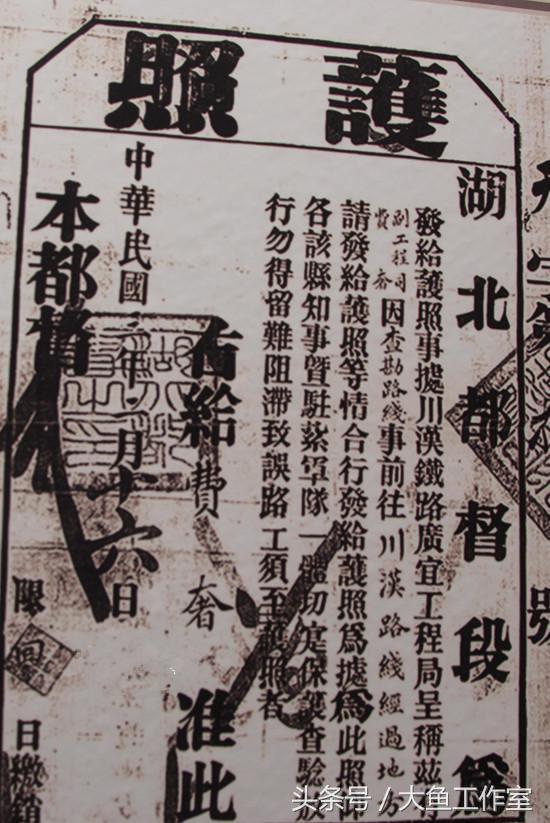 護照
號
湖北都督段爲
發給護照事據川漢鐵路廣宜工程局呈稱茲有
副工程司
費奢
因查勘路綫事前往川漢路綫經過地方
請發給護照等情合行發給護照爲據爲此照仰
各該縣知事暨駐紮軍隊一體切寔保護查驗放
行勿得留難阻滯致誤路工須至護照者
右給費奢准此
中華民國年月十六日
本都督
限回日繳銷
头条号 / 大鱼工作室